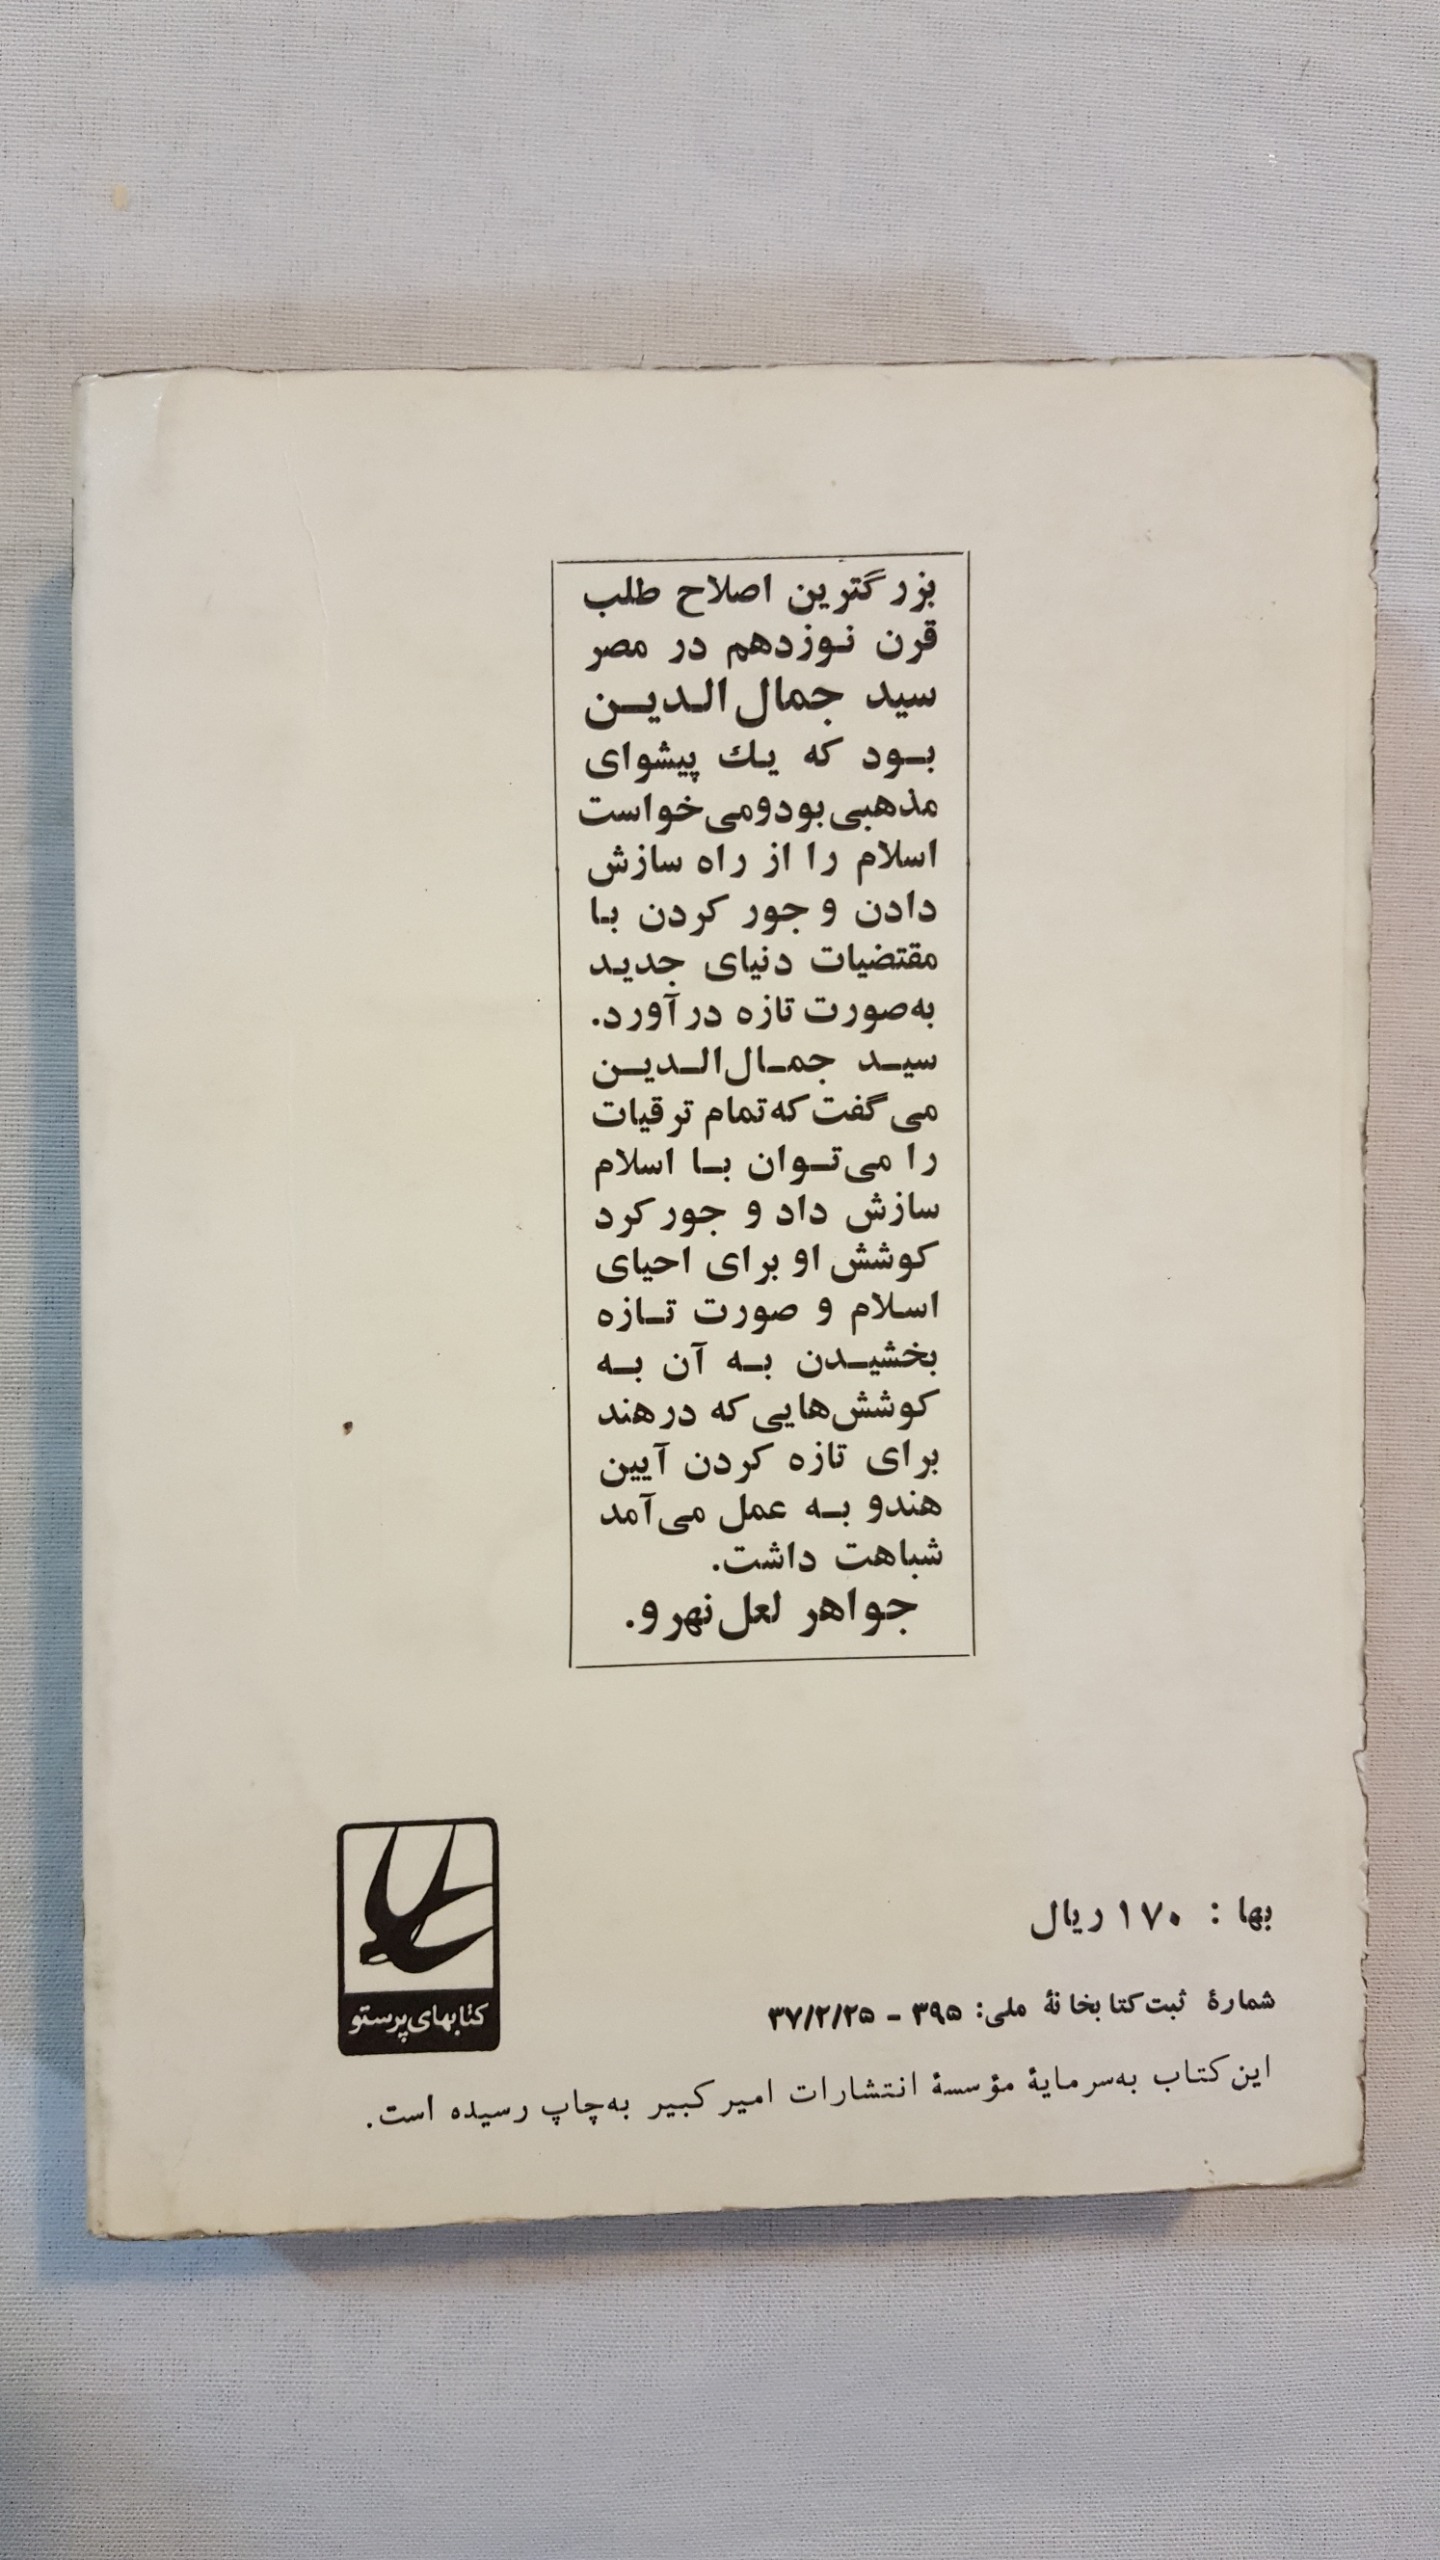 بزرگترین اصلاح طلب
قرن نوزدهم در مصر
سید جمال‌الدین
بود که یك پیشوای
مذهبی‌بودومی‌خواست
اسلام را از راه سازش
دادن و جور کردن با
مقتضیات دنیای جدید
به‌صورت تازه درآورد.
سید جمال‌الدین
می‌گفت‌که‌تمام ترقیات
را می‌توان با اسلام
سازش داد و جور کرد
کوشش او برای احیای
اسلام و صورت تازه
بخشیدن به آن به
کوشش‌هایی‌که درهند
برای تازه کردن آیین
هندو به عمل می‌آمد
شباهت داشت.
جواهر لعل‌نهرو.
بها : ۱۷۰ ریال
شمارهٔ ثبت‌کتابخانهٔ ملی: ۳۹۵ - ۳۷/۲/۲۵
این‌کتاب به‌سرمایهٔ مؤسسهٔ انتشارات امیرکبیر به‌چاپ رسیده است.
کتابهای‌پرستو